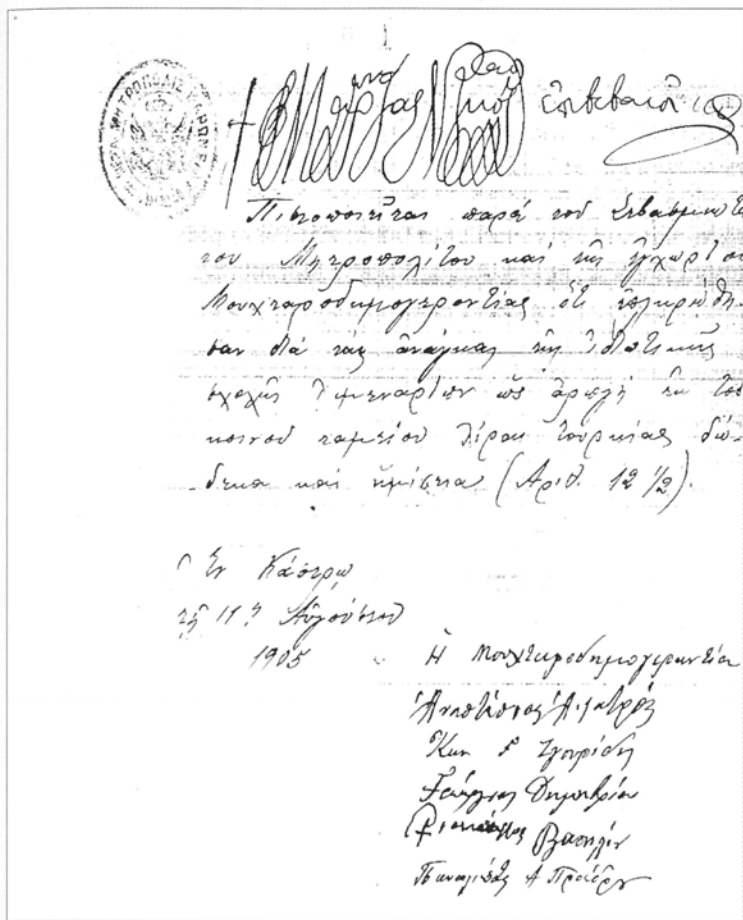 ἐπιβεβαιοῖ
Πιστοποιεῖται παρὰ τοῦ Σεβασμιωτά
του Μητροπολίτου καὶ τῆς ἐγχωρίου
Μουχταροδημογεροντίας ὅτι ἐπληρώθη-
σαν διὰ τὰς ἀνάγκας τῆς ἰδιωτικῆς
σχολῆς Λιμεναρίων ὡς ἀρωγὴ ἐκ τοῦ
κοινοῦ ταμείου λίραι Τουρκίας δώ-
δεκα καὶ ἡμίσεια (Ἀριθ. 12 1/2).
Ἐν Κάστρῳ
τῇ 11ῃ Αὐγούστου
1905
Ἡ Μουχταροδημογεροντία
Ἀναστάσιος
Κων
Γεώργιος Δημητρίου
Βασιλείου
Παναγιώτης Α